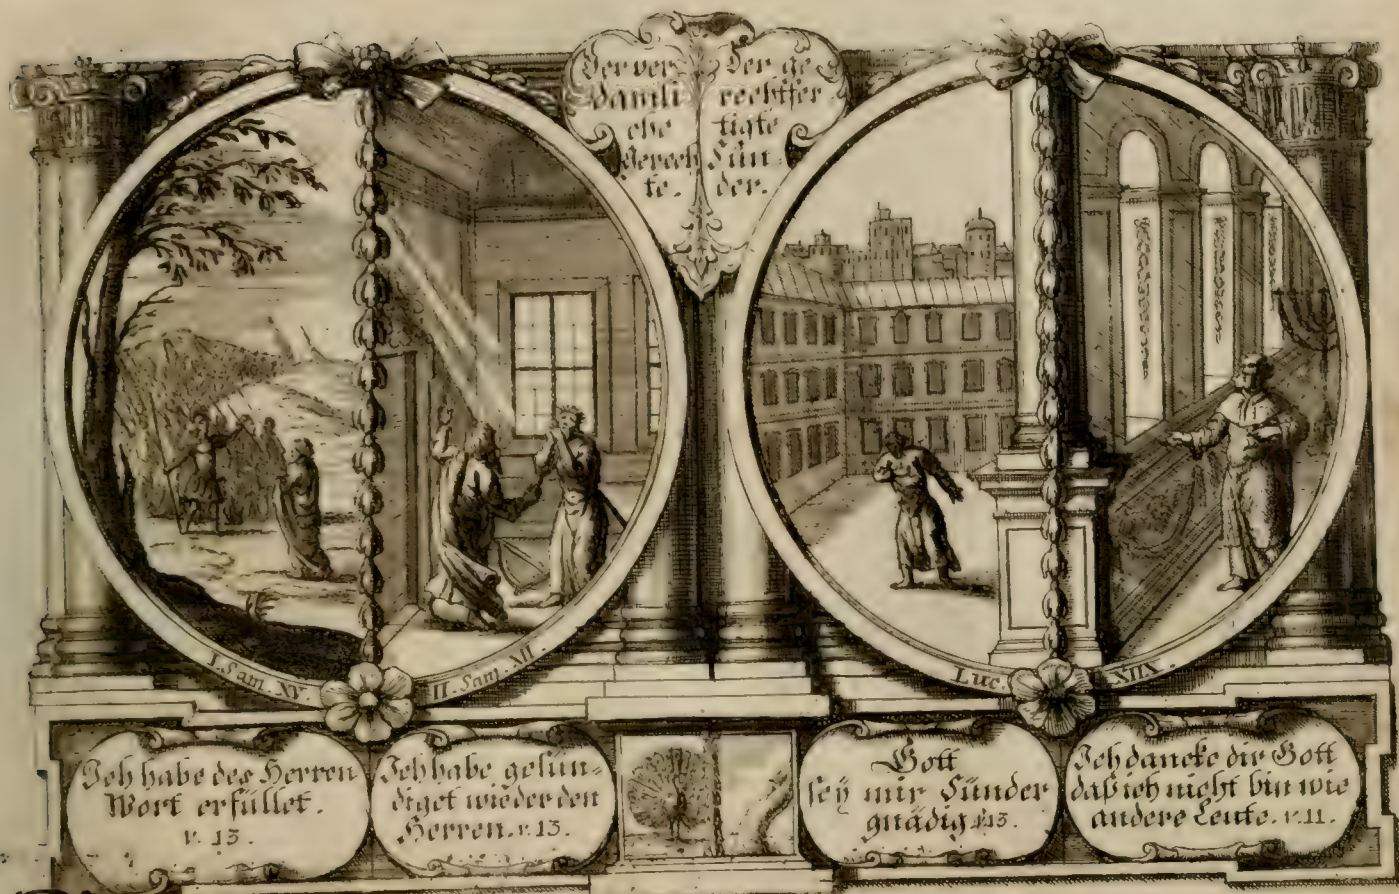 Der ver
damli
che
Gerech
te.
Der ge
rechtfer
tigte
Sün-
der.
I. Sam. XV.
II. Sam. XII.
Luc.
XIIX.
Ich habe des Herren
Wort erfüllet.
v. 13.
Ich habe gesün-
diget wieder den
Herren. v. 13.
Gott
seÿ mir Sünder
gnädig v. 13.
Ich dancke dir Gott
daß ich nicht bin wie
andere Leute. v. 11.